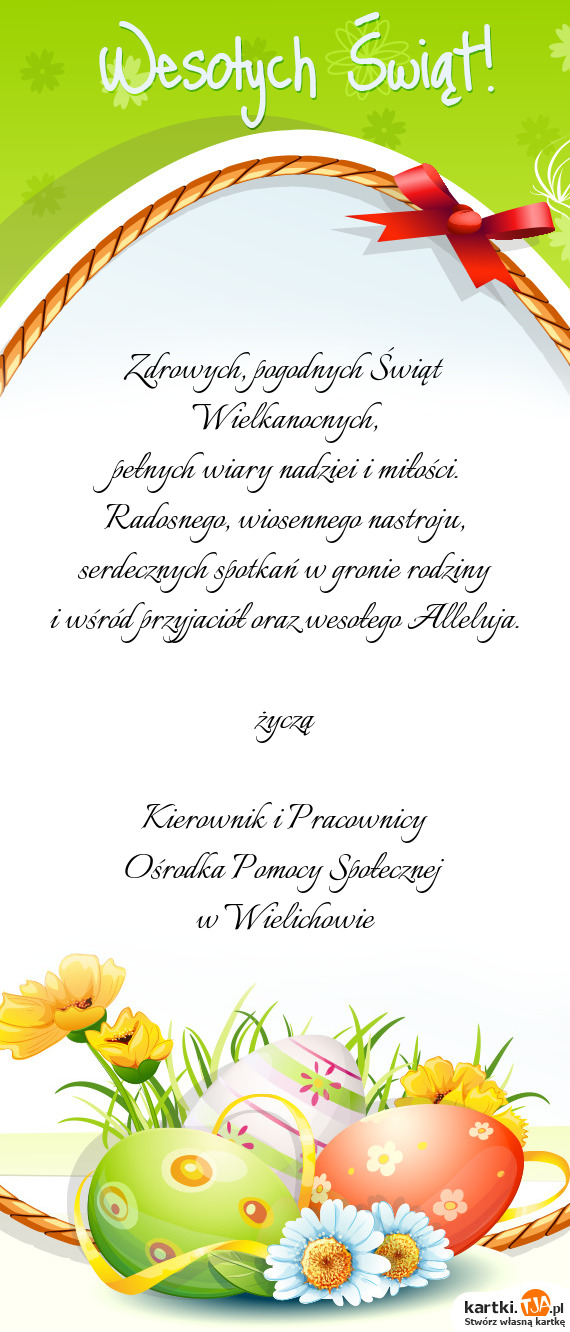 Wesołych Świąt!
Zdrowych, pogodnych Świąt
Wielkanocnych,
pełnych wiary nadziei i miłości.
Radosnego, wiosennego nastroju,
serdecznych spotkań w gronie rodziny
i wśród przyjaciół oraz wesołego Alleluja.
życzą
Kierownik i Pracownicy
Ośrodka Pomocy Społecznej
w Wielichowie
kartki.TJA.pl
Stwórz własną kartkę